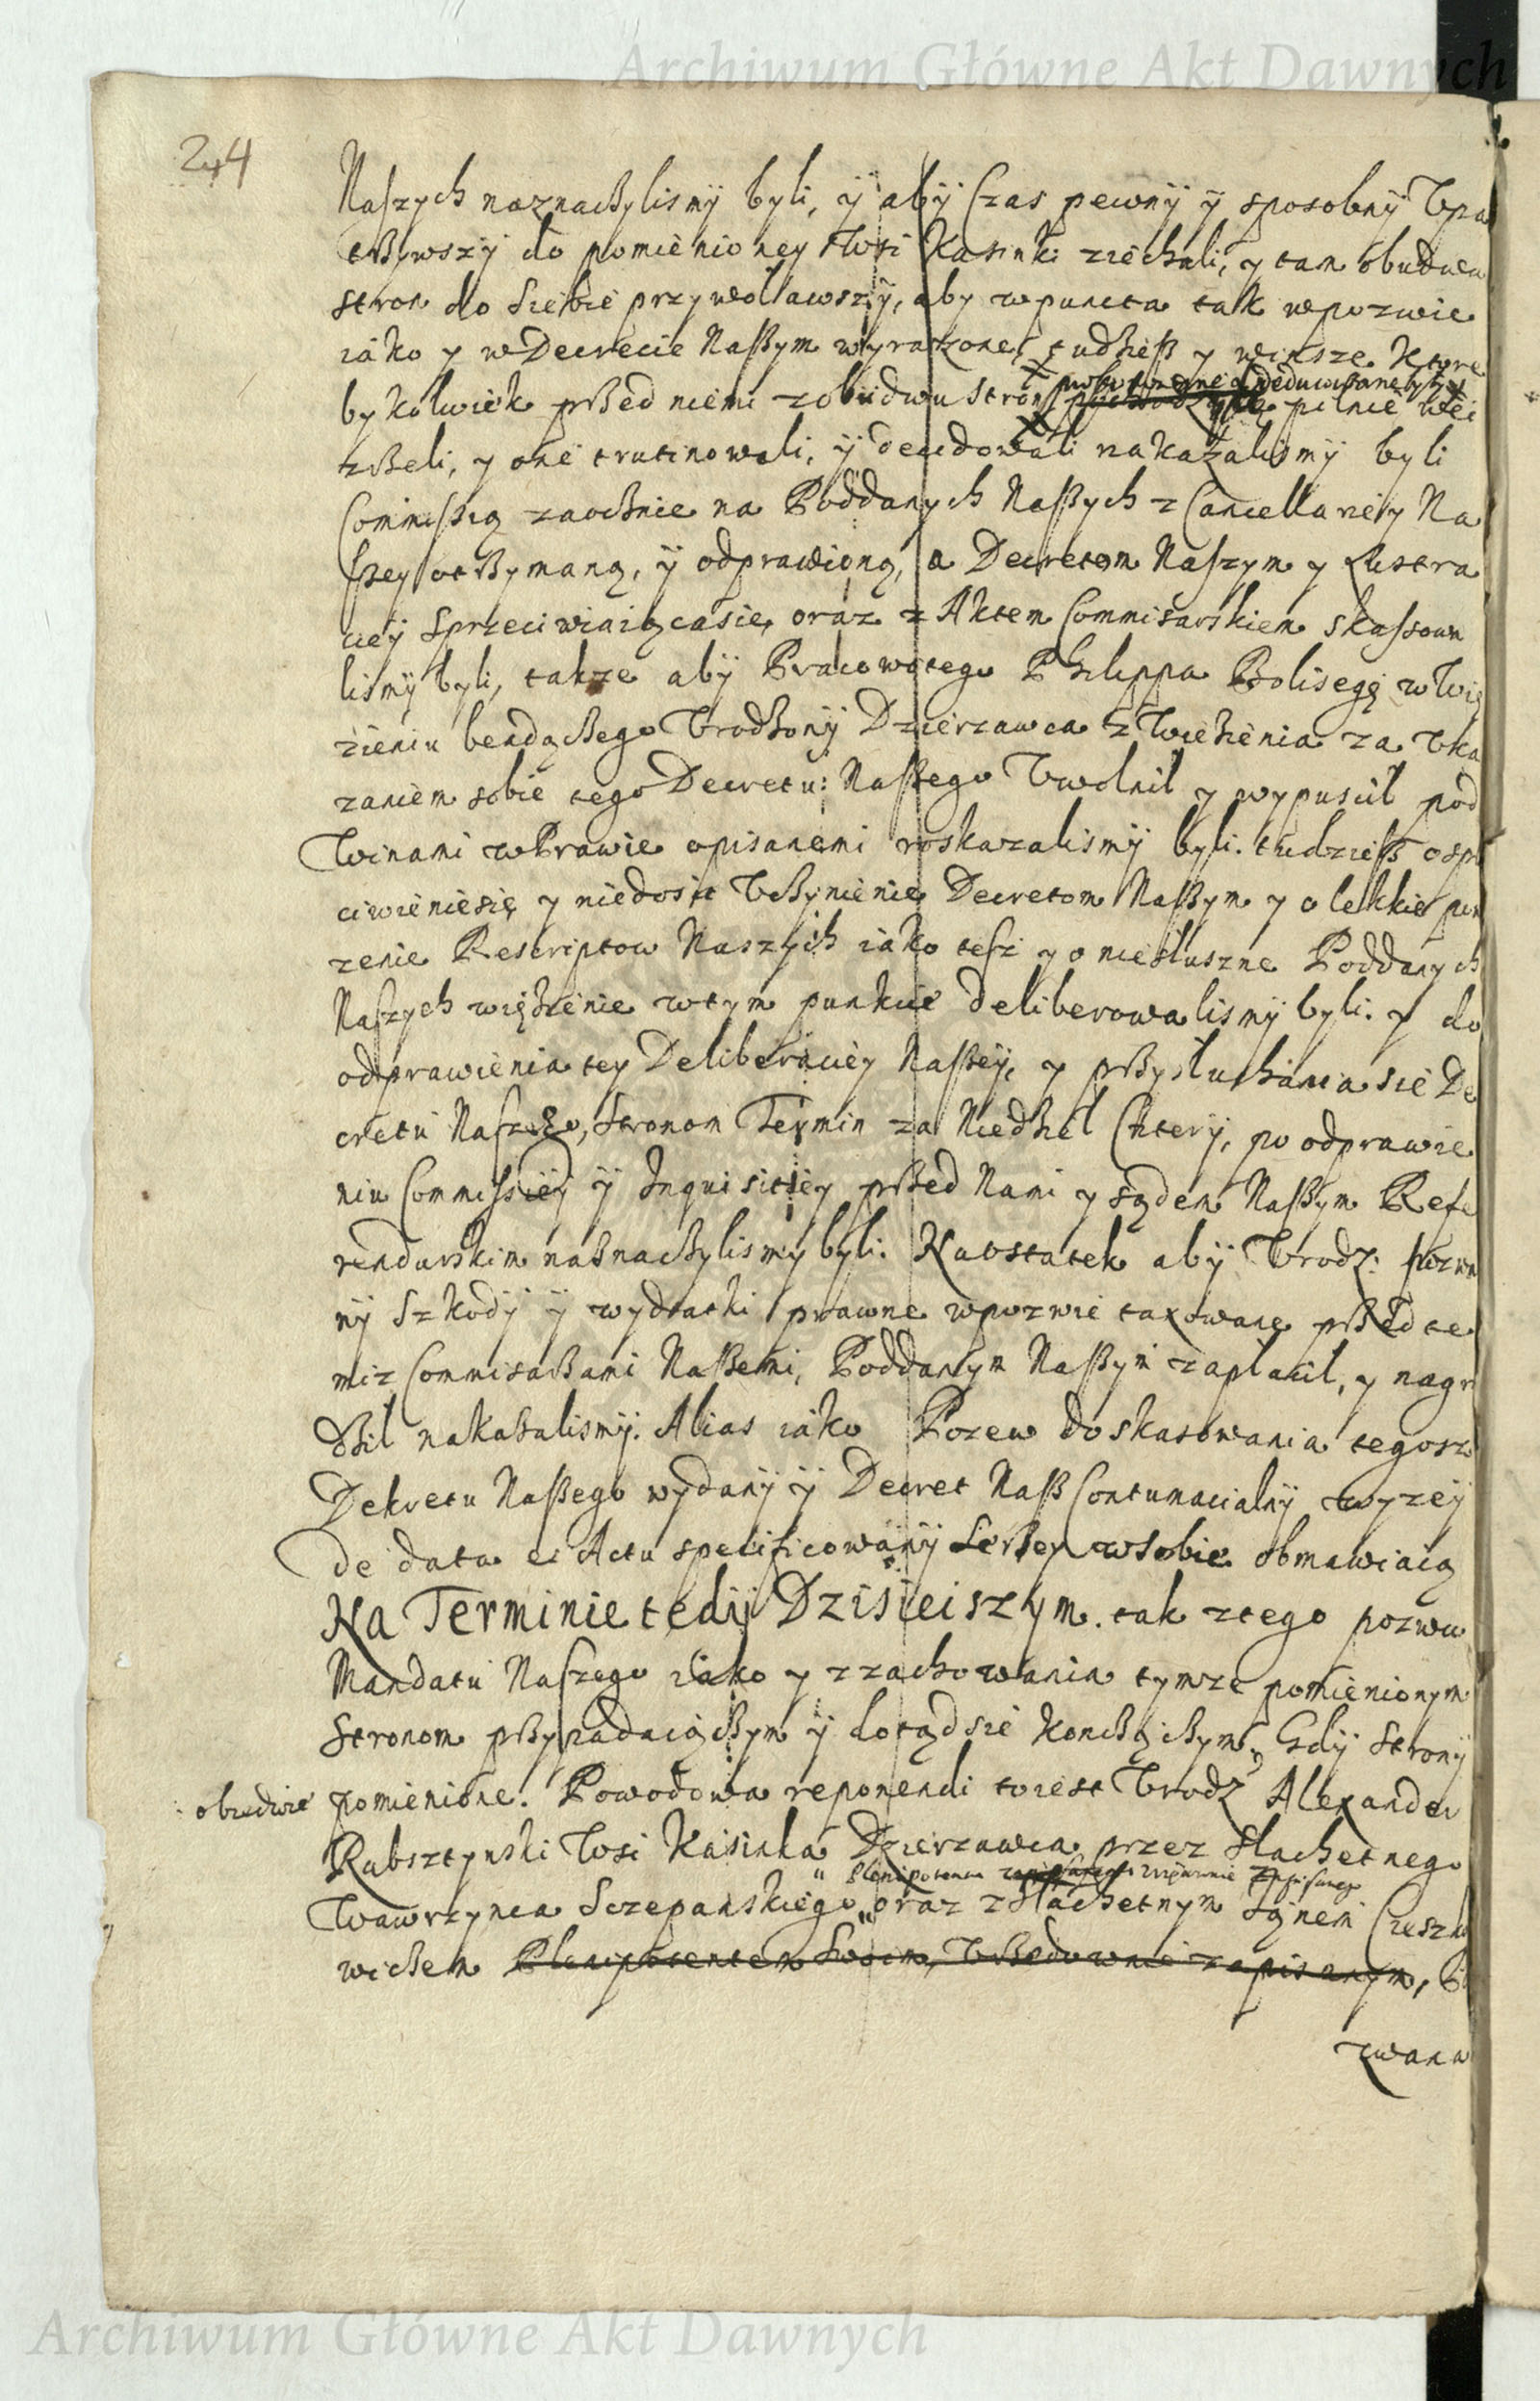 Archiwum Główne Akt Dawnych
244
Naszych naznaczylismÿ byli, ÿ abÿ Czas pewnÿ ÿ sposobnÿ Vpa
trzywszÿ do pomienioney Wsi Kasinki ziechali, y tam obudwu
stron do siebie przywoławszÿ, aby w puncta tak w pozwie
iáko y w Decrecie Naszym wyrażone, tudziesz y wiksze ktore
proponowane y deducowane były
bykolwiek przed niemi z obudwu stron pilnie wei
zrzeli, y one trutinowali, ÿ decidowali nakazalismÿ byli
Commissią zaocznie na Poddanych Naszych z Cancellariey Na
szey otrzymaną, ÿ odprawioną, a Decretom Naszym y Lustra
cieÿ sprzeciwiaiącasie, oraz z Aktem Commisarskiem skassowa
lismÿ byli, takze abÿ Pracowitego Philippa Bolisegę w Wię
zieniu bendączego Vrodzonÿ Dzierzawca z Wiezienia za Vka
zaniem sobie tego Decretu Naszego Vwolnil y wypuscil pod
Winami w Prawie opisanemi roskazalismÿ byli. tudziesz o sprze
ciwieniesię y niedosic Vczynienie Decretom Naszym y o lekkie pow
zenie Rescriptow Naszych iáko tesz y o niesłuszne Poddanych
Naszych więzienie w tym punkcie deliberowalismÿ byli. y do
odprawienia tey Deliberaciey Naszeÿ, y przysłuchania sie De
cretu Naszego, stronom Termin za Niedziel Czterÿ, po odprawie
niu Commissieÿ ÿ Inquisitiey przed Nami y sądem Naszym Refe
rendarskim naznaczylismy byli. Naostatek abÿ Vrodz: pozwa
nÿ Szkodÿ ÿ wydatki prawne w pozwie taxowane przed te
miz Commisarzami Naszemi, Poddanym Naszym zaplacil, y nagro
dzil nakazalismÿ. Alias iáko Pozew do skasowania tegosz
Dekretu Naszego wydanÿ ÿ Decret Nasz Contumacialnÿ wyzeÿ
de data et Actu specificowanÿ szerzey w sobie obmawiaią
Na Terminie tedÿ Dzisieiszym. tak z tego pozwu
Mandatu Naszego iáko y z zachowania tymze pomienionym
stronom przypadaiączym ÿ dotądsie konczączym, Gdÿ stronÿ
obiedwie pomienione. Powodowa reponendi toiest Vrodz: Alexander
Rabsztynski Wsi Kasinka Dzierzawca przez Slachetnego
Plenipotenta zapisanego zupelnie zapisanego
Wawrzynca Sczepanskiego oraz z Slachetnym synem Czeszko
wiczem Plenipotentem Swoim, Vrzedownie zapisanym, Po
zwana
Archiwum Główne Akt Dawnych